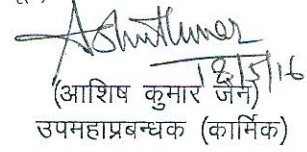 18/5/16
(आशिष कुमार जैन)
उपमहाप्रबन्धक (कार्मिक)